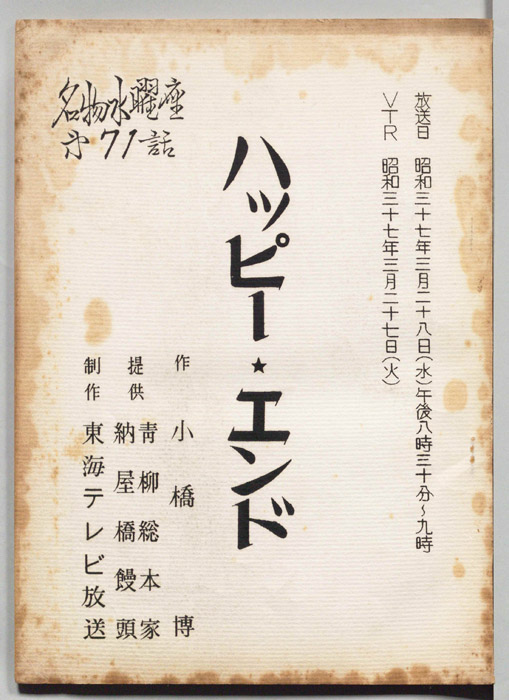 放送日 昭和三十七年三月二十八日(水)午後八時三十分~九時
VTR 昭和三十七年三月二十七日(火)
ハッピー★エンド
名物水曜座
才71話
作 小橋 博
提供 青柳総本家
納屋橋饅頭
制作 東海テレビ放送